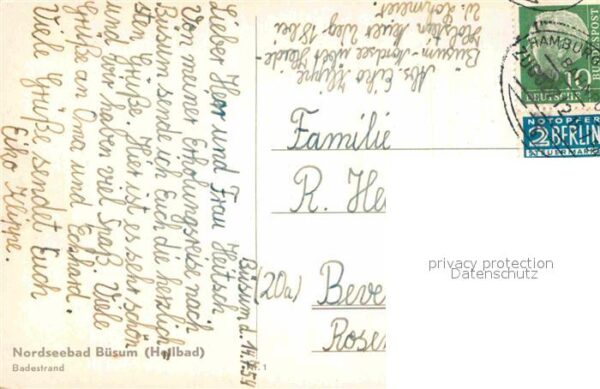 Büsum d. 14.7.54
Lieber Herr und Frau Heitsch
Von meiner Erholungsreise nach
Büsum sende ich Euch die herzlich-
sten Grüße. Hier ist es sehr schön
und wir haben viel Spaß. Viele
Grüße an Oma und Eckhard.
Viele Grüße sendet Euch
Eiko Klippe.
Abs. Eiko Klippe
Büsum-Nordsee über Heide-
Holstein Neuer Weg 18 bei
Familie
R. He
(20a) Beve
Rosen
HAMBURG
10
DEUTSCHE
BUNDESPOST
NOTOPFER
2 BERLIN
STEUERMARKE
privacy protection
Datenschutz
Nordseebad Büsum (Heilbad)
Badestrand
1